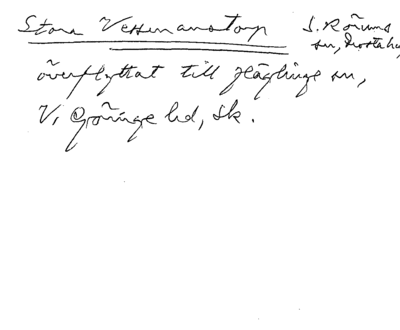 Stora Vessmanstorp S. Rörums
sn, Frosta hd,
överflyttat till Häglinge sn,
V. Göinge hd, Sk.